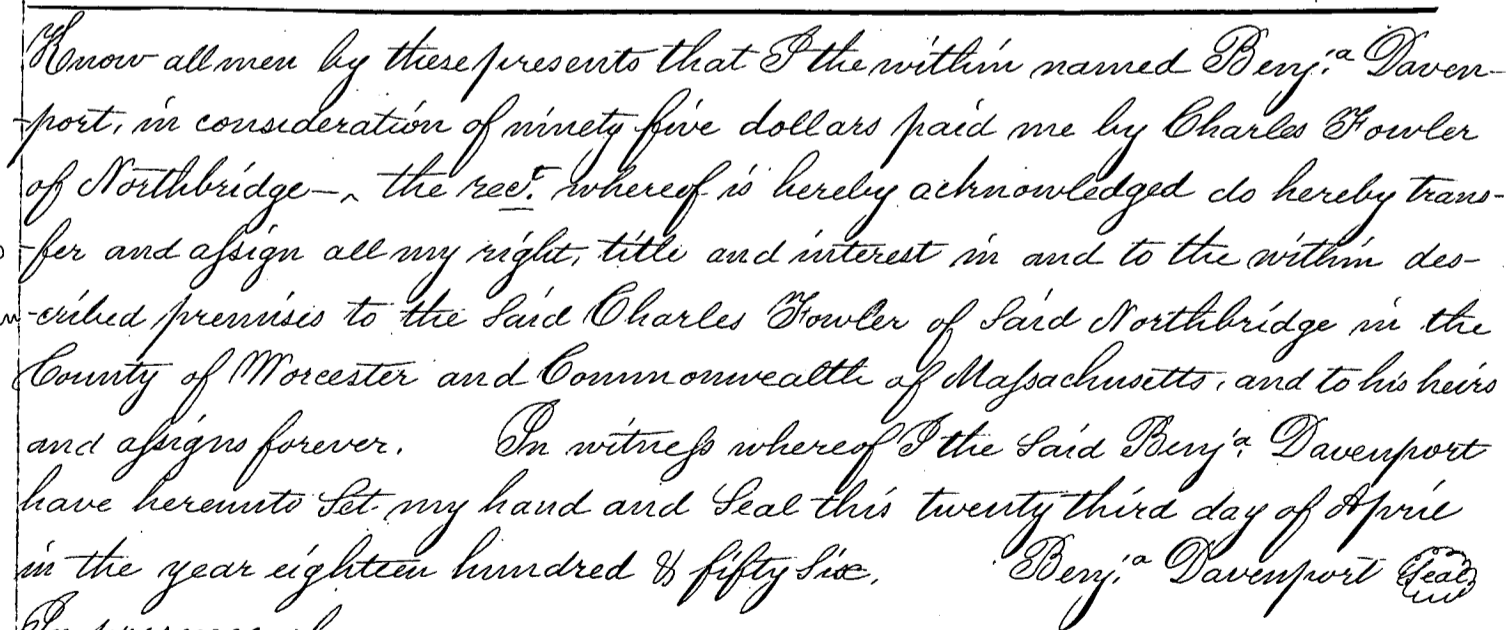 Know all men by these presents that I the within named Benj.a Daven-
-port, in consideration of ninety five dollars paid me by Charles Fowler
of Northbridge-^ the rect. whereof is hereby acknowledged do hereby trans-
-fer and assign all my right, title and interest in and to the within des-
-cribed premises to the Said Charles Fowler of Said Northbridge in the
County of Worcester and Commonwealth of Massachusetts, and to his heirs
and assigns forever. In witness whereof I the Said Benj.a Davenport
have hereunto Set my hand and Seal this twenty third day of April
in the year eighteen hundred & fifty Six. Benj.a Davenport Seal
In presence of